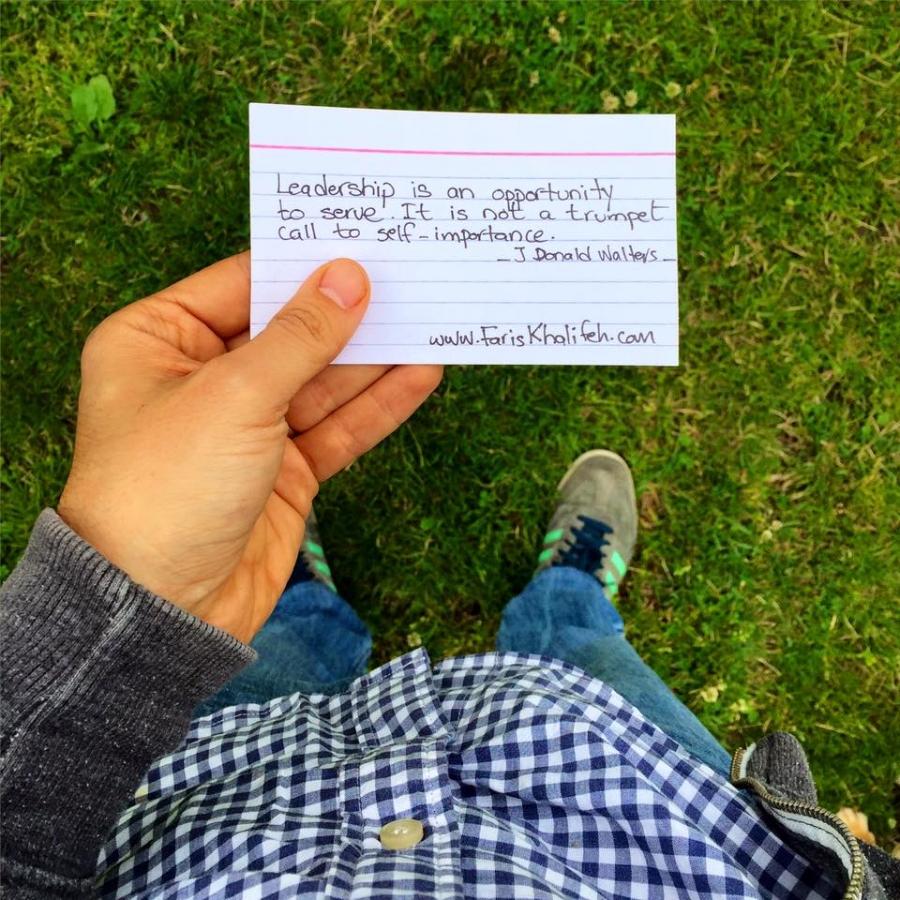 Leadership is an opportunity
to serve. It is not a trumpet
call to self-importance.
- J Donald Walters -
www.FarisKhalifeh.com